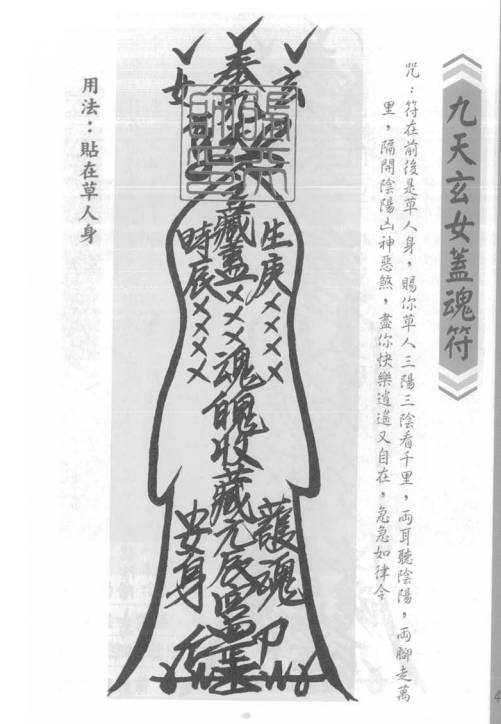 九天玄女蓋魂符
咒：符在前後是草人身，賜你草人三陽三陰看千里，兩耳聽陰陽，兩腳走萬
里，隔開陰陽凶神惡煞，盡你快樂逍遙又自在，急急如律令
玄
奉
女
主藏蓋×××魂魄收藏元辰宮
生庚××××
時辰××××
護魂
安身
用法：貼在草人身
4